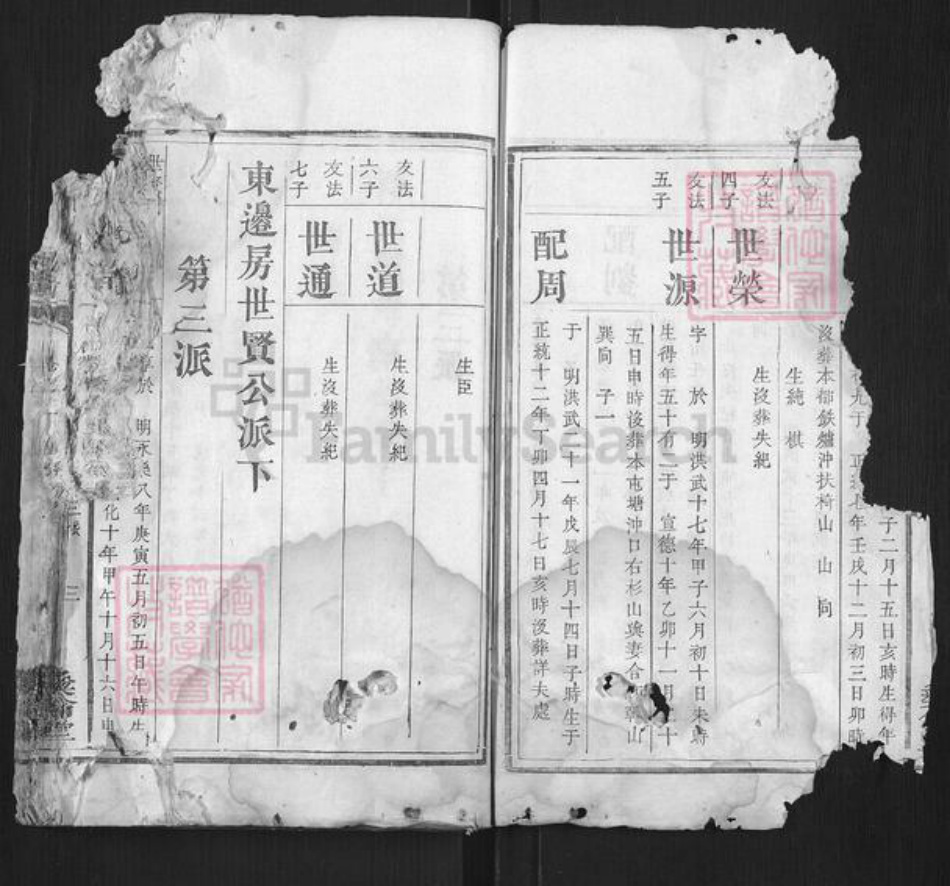 子二月十五日亥時生得年
年壬戌十二月初三日卯時
沒葬本都鉄爐沖扶椅山 山 向
生純 棋
友法四子
世榮
生沒葬失紀
友法五子
世源
字 於 明洪武十七年甲子六月初十日未時
生得年五十有二于 宣德十年乙卯十一月 二十
五日申時沒葬本屯塘沖口右杉山與妻合 山
巽向 子一
配周
于 明洪武二十一年戊辰七月十四日子時生于
正統十二年丁卯四月十七日亥時沒葬詳夫處
生臣
友法六子
世道
生沒葬失紀
友法七子
世通
生沒葬失紀
東邊房世賢公派下
第三派
於 明永樂八年庚寅五月初五日午時生
化十年甲午十月十六日申
三
FamilySearch